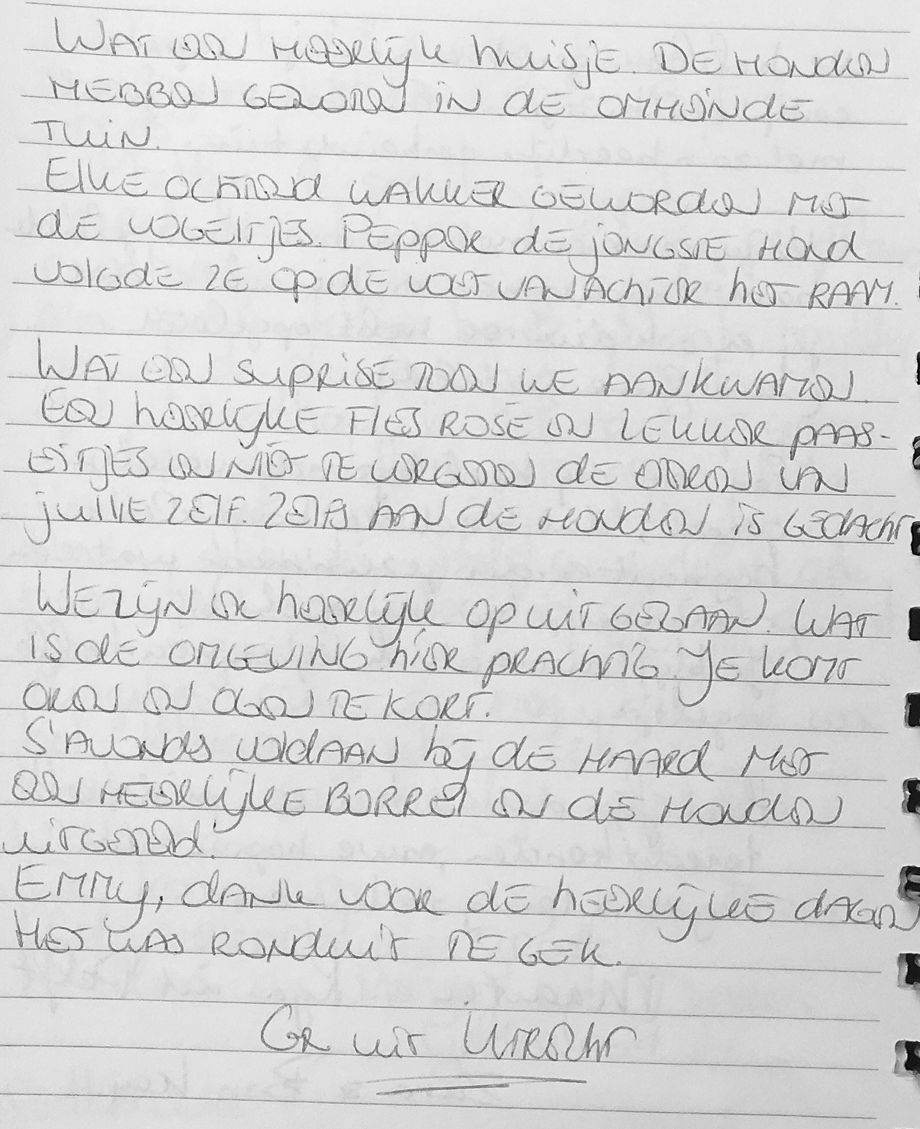 WAT EEN HEERLIJK huisje. DE HONDEN
HEBBEN GENOTEN in dE OMHEINDE
TUIN.
ELKE OCHTEND WAKKER GEWORDEN MET
dE VOGELTJES. PEPPER dE jONGSTE HOND
VOLGDE ZE op dE VOET VAN ACHTER hET RAAM.
WAT EEN SUPRISE TOEN WE AANKWAMEN.
EEN hEERLIJKE FLES ROSÉ EN LEKKER pAAS-
EITJES EN NIET TE VERGETEN dE EIEREN VAN
jULLIE ZELF. ZELFS AAN dE HONDEN is GEDACHT
WE ZIJN ER hEERLIJK OP UIT GEGAAN. WAT
IS dE OMGEVING hIER PRACHTIG. JE KOMT
OREN EN OGEN TE KORT.
S'AVONDS VOLDAAN bij dE HAARD MET
EEN HEERLIJKE BORREL EN dE HONDEN
UITGETELD.
EMMY, dANK VOOR dE hEERLIJKE dAGEN
HET WAS RONDUIT TE GEK.
GR uit UTRECHT